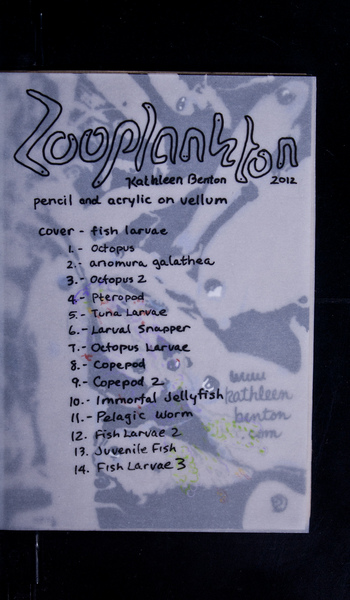 Zooplankton
Kathleen Benton 2012
pencil and acrylic on vellum
cover - fish larvae
1.- Octopus
2.- anomura galathea
3.- Octopus 2
4.- Pteropod
5.- Tuna Larvae
6.- Larval Snapper
7.- Octopus Larvae
8.- Copepod
9.- Copepod 2
10.- Immortal Jellyfish
11.- Pelagic Worm
12. Fish Larvae 2
13. Juvenile Fish
14. Fish Larvae 3
www
kathleen
benton
.com